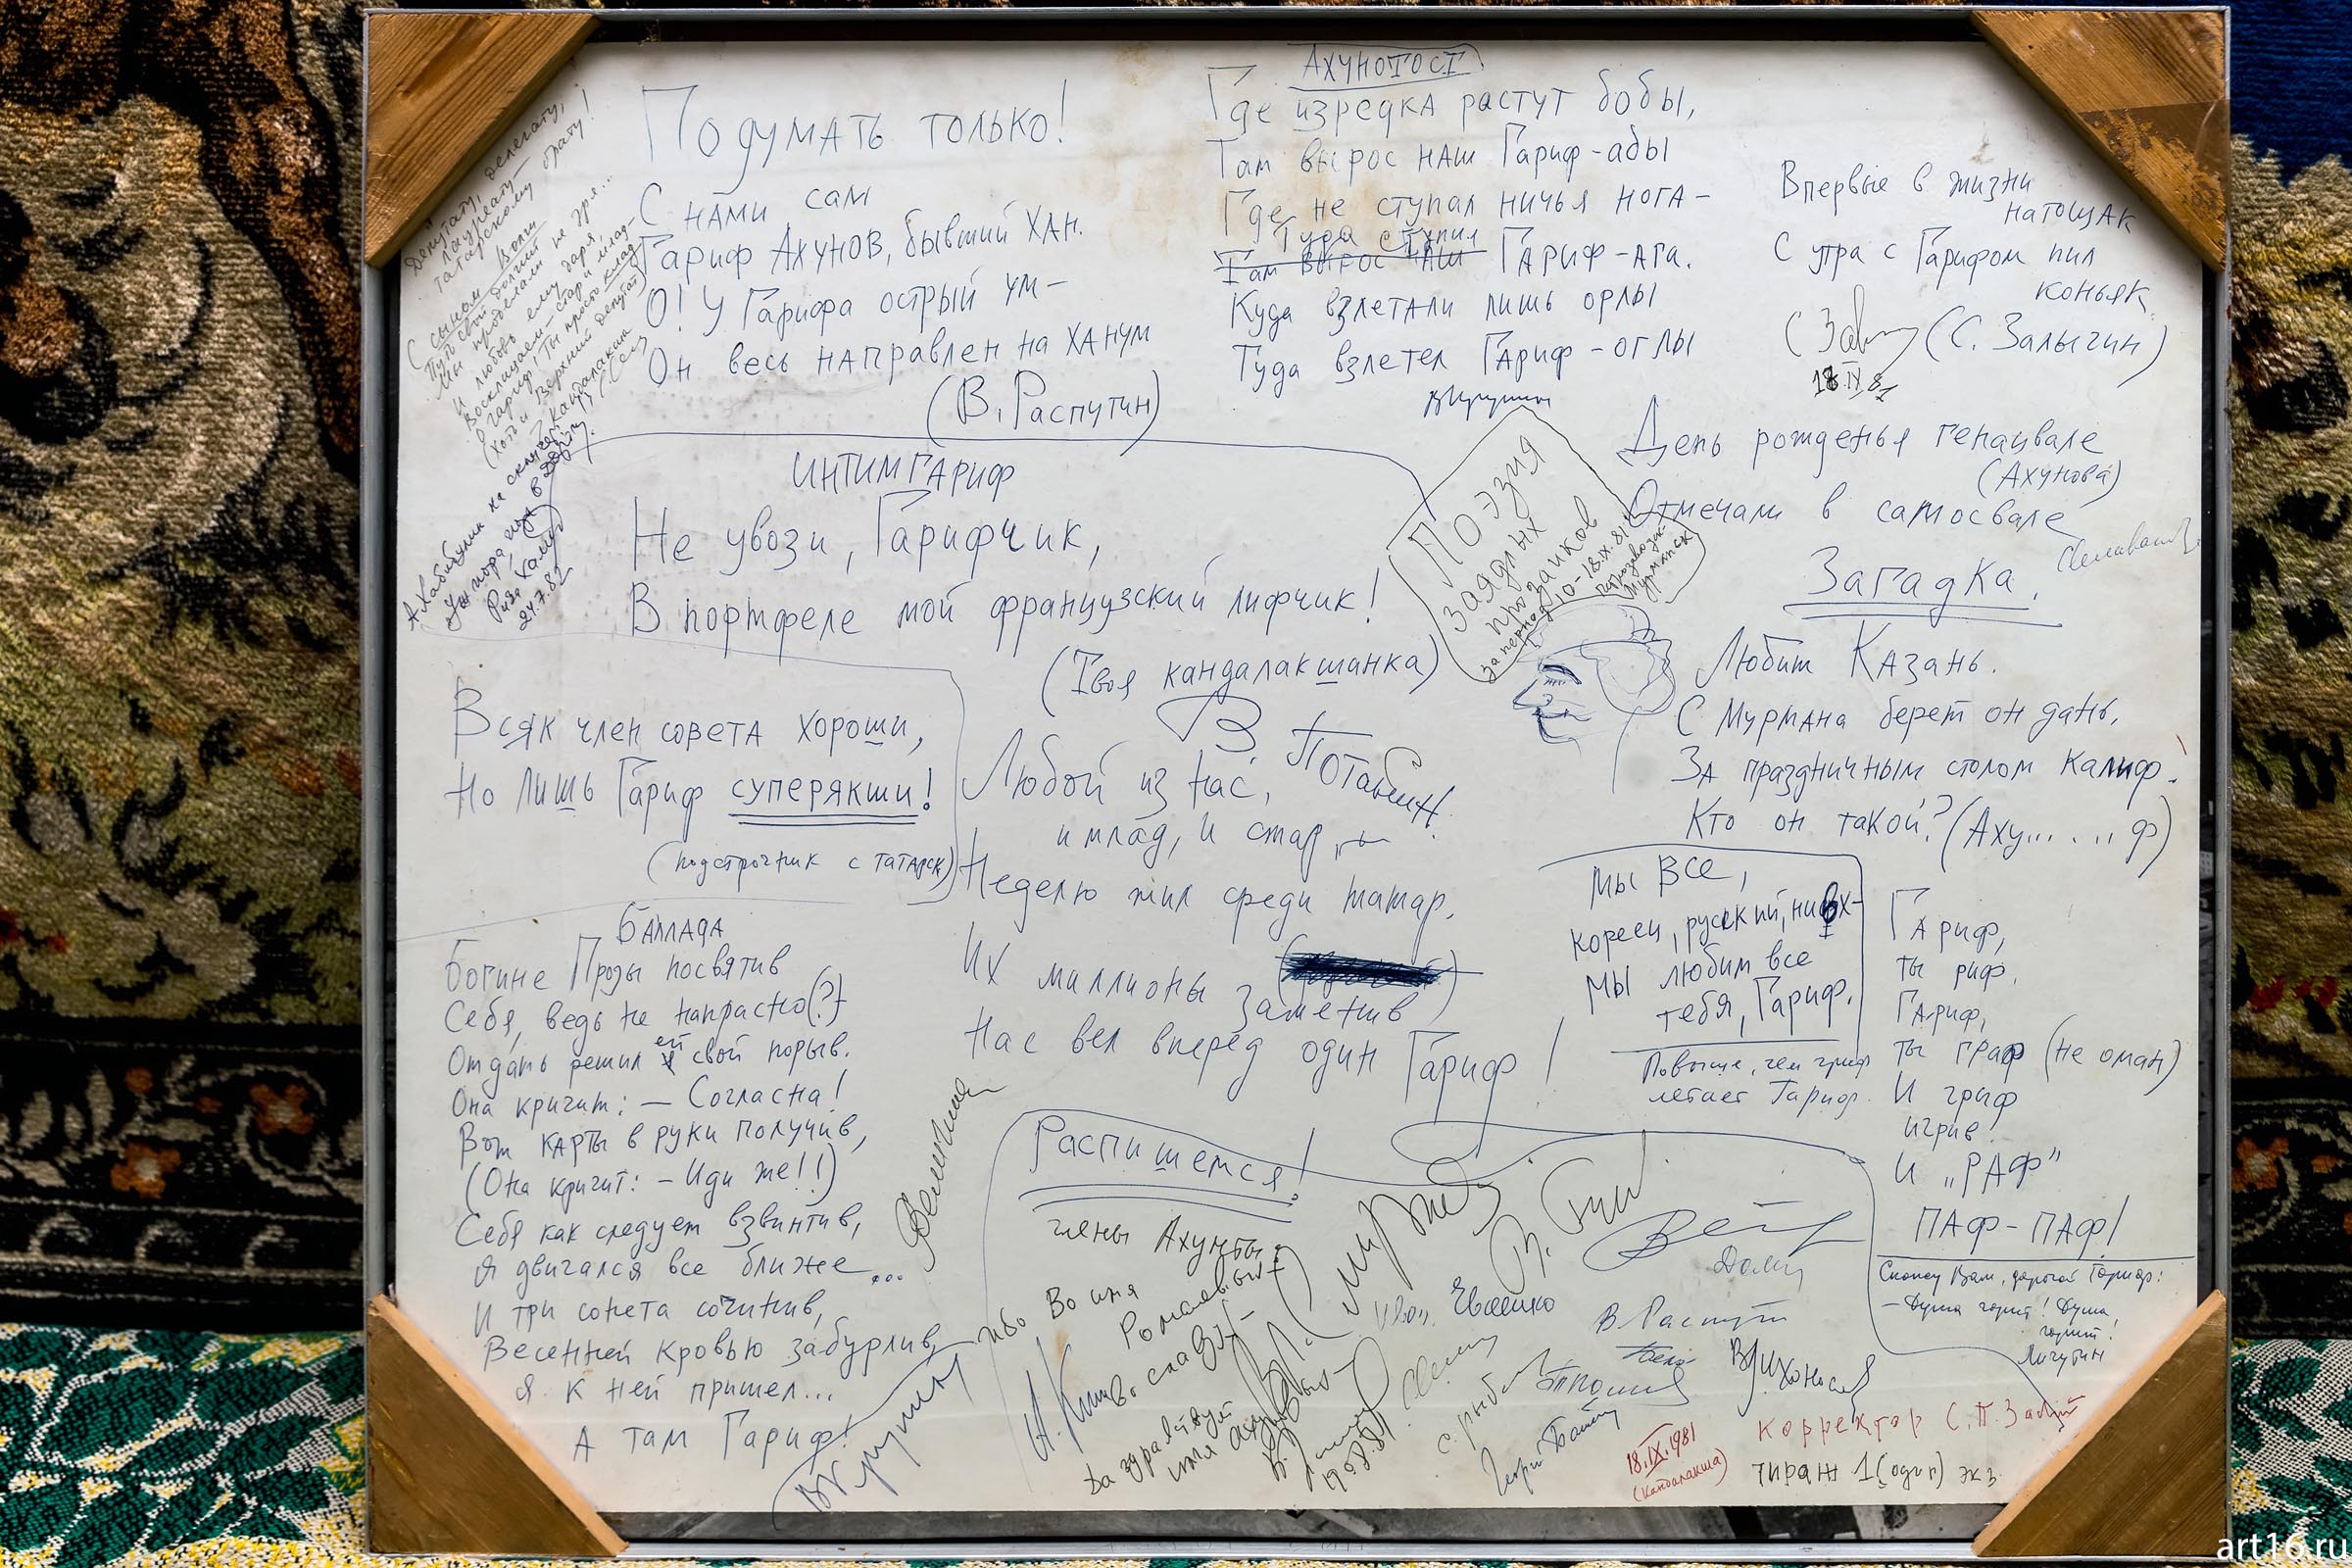 Депутату, делегату,
лауреату —
татарскому брату!
С сыном Волги
Путь свой долгий
Мы проделали не зря...
И любовь ему даря,
Восклицаем — стар и млад —
Гариф! Ты просто клад
(хоть и Верхний депутат)
А. Хабибулин на
24.7.82
Подумать только!
С нами сам
Гариф Ахунов, бывший хан.
О! У Гарифа острый ум —
Он весь направлен на ханум
(В. Распутин)
Ахунотост
Где изредка растут бобы,
Там вырос наш Гариф-абы
Где не ступал ничья нога —
Туда ступил
Там вырос наш Гариф-ага.
Куда взлетали лишь орлы
Туда взлетел Гариф-оглы
ВКрупин
Впервые в жизни
натощак
С утра с Гарифом пил
коньяк
(С. Залыгин)
18.IX.81
День рожденья генацвале
(Ахунова)
Отмечали в самосвале
Поэзия
заядлых
прозаиков
за период 10-18.IX.81 г.
Петрозаводск
Мурманск
ИНТИМГАРИФ
Не увози, Гарифчик,
В портфеле мой французский лифчик!
(Твоя кандалакшанка)
Загадка.
Любит Казань.
С Мурмана берет он дань,
За праздничным столом калиф.
Кто он такой? (Аху......ф)
Всяк член совета хороши,
Но лишь Гариф суперякши!
(подстрочник с татарск)
В. Потанин
Любой из нас,
и млад, и стар,
Неделю жил среди татар.
Их миллионы заменив
Нас вел вперед один Гариф!
Мы все,
кореец, русский, нивх —
Мы любим все
тебя, Гариф.
Повыше, чем гриф
летает Гариф.
Гариф,
ты риф,
Гариф,
ты граф (не оман)
И гриф
игрив.
И „РАФ"
ПАФ-ПАФ!
Баллада
Богине Прозы посвятив
Себя, ведь не напрасно(?)
Отдать решил ей свой порыв.
Она кричит: — Согласна!
Вот карты в руки получив,
(Она кричит: — Иди же!!)
Себя как следует взвинтив,
Я двигался все ближе...
И три сонета сочинив,
Весенней кровью забурлив,
Я к ней пришел...
А там Гариф!
ВКрупин
Распишемся!
члены Ахунты:
ибо Во имя
Да здравствует
имя
19.8.81
Евсеенко
В Распутин
С. Рыбас
ВЛихоносов
Скажу Вам, дорогой Гариф:
— Душа горит! Душа
горит!
Личутин
18.IX.1981
(Кандалакша)
Корректор С.П. Залыг
Тираж 1 (один) экз.
art16.ru